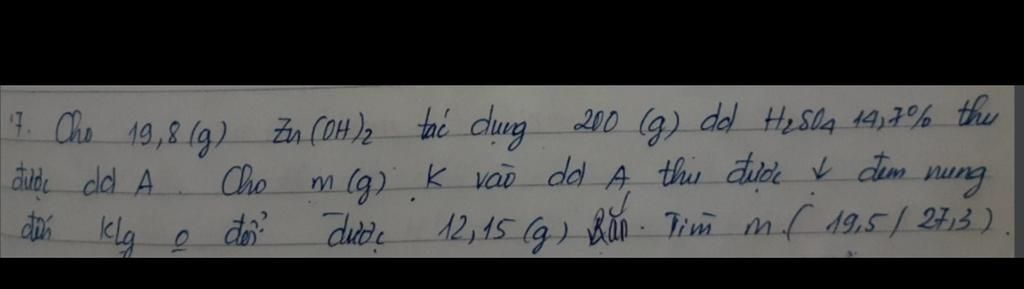 7. Cho 19,8 (g) Zn(OH)2 tác dụng 200 (g) dd H2SO4 14,7% thu
được dd A. Cho m (g) K vào dd A, thu được ↓ đem nung
đến klg o đổi được 12,15 (g) Rắn. Tìm m. ( 19,5 / 27,3 ).